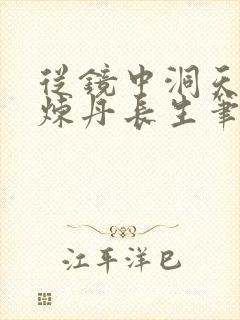 從鏡中洞天
煉丹長生筆
江平洋巳